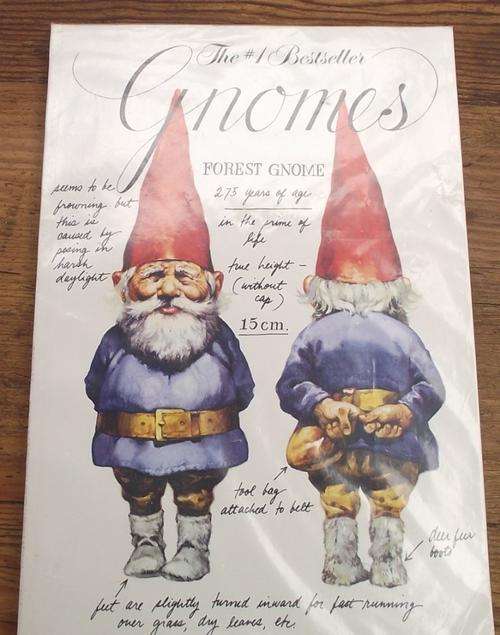 The #1 Bestseller
Gnomes
FOREST GNOME
275 years of age
in the prime of
life
true height –
(without
cap)
15cm.
seems to be
frowning but
this is
caused by
posing in
harsh
daylight
tool bag
attached to belt
deer fur
boots
feet are slightly turned inward for fast running
over grass, dry leaves, etc.